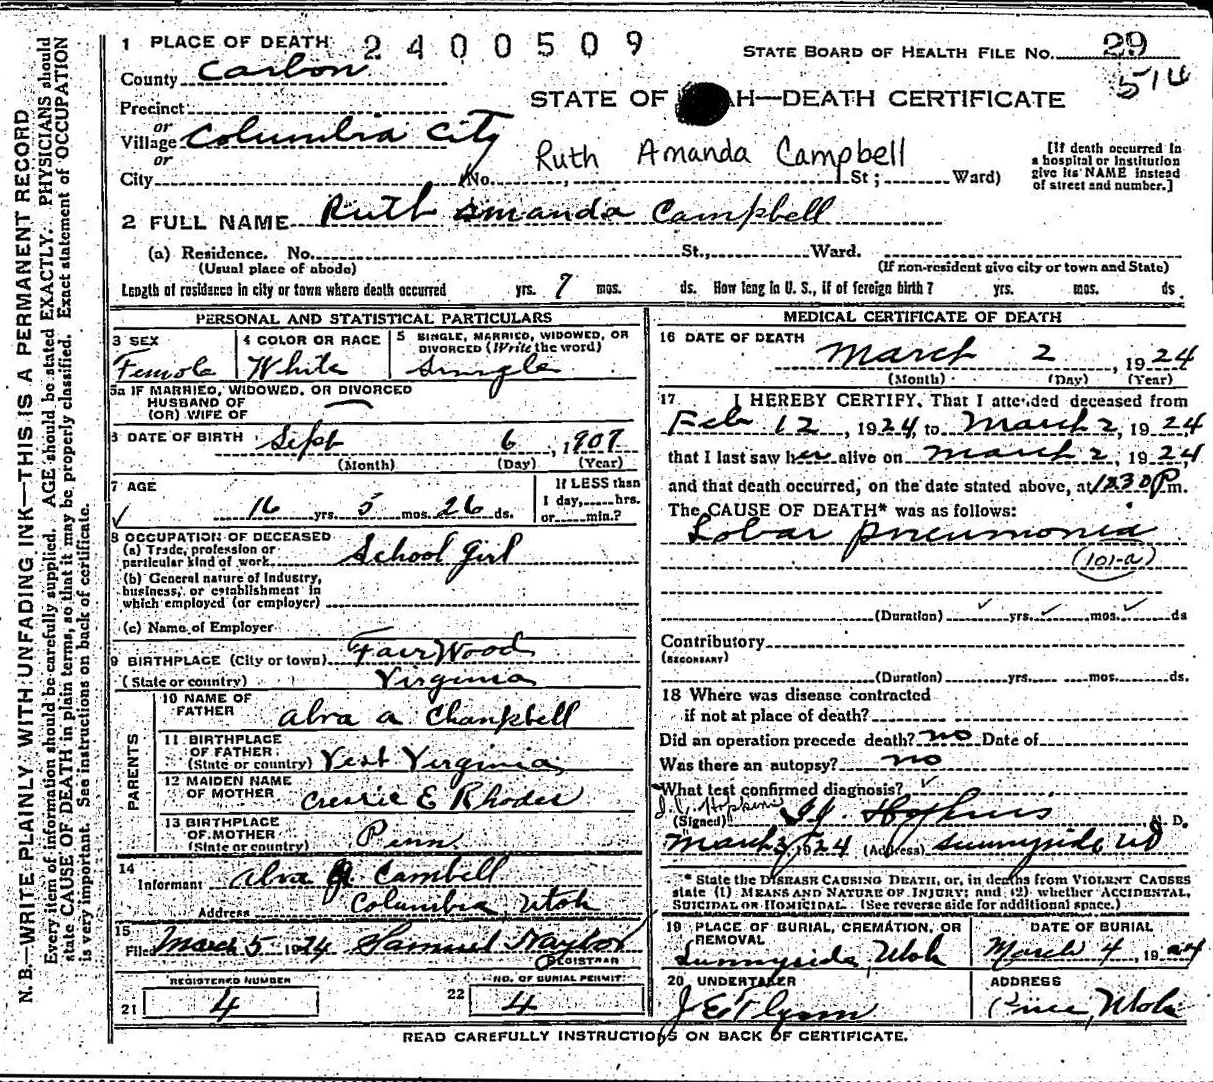 N.B.—WRITE PLAINLY WITH UNFADING INK—THIS IS A PERMANENT RECORD
Every item of information should be carefully supplied. AGE should be stated EXACTLY. PHYSICIANS should
state CAUSE OF DEATH in plain terms, so that it may be properly classified. Exact statement of OCCUPATION
is very important. See instructions on back of certificate.
1 PLACE OF DEATH 2400509
STATE BOARD OF HEALTH FILE No. 29
514
County Carbon
STATE OF AH—DEATH CERTIFICATE
Precinct
or
Village Columbia City
or
Ruth Amanda Campbell
City (No. , St; Ward)
[If death occurred in
a hospital or institution
give its NAME instead
of street and number.]
2 FULL NAME Ruth Amanda Campbell
(a) Residence. No. St., Ward.
(Usual place of abode) (If non-resident give city or town and State)
Length of residence in city or town where death occurred yrs. 7 mos. ds. How long in U. S., if of foreign birth? yrs. mos. ds.
PERSONAL AND STATISTICAL PARTICULARS
3 SEX Female
4 COLOR OR RACE White
5 SINGLE, MARRIED, WIDOWED, OR
DIVORCED (Write the word)
Single
5a IF MARRIED, WIDOWED, OR DIVORCED
HUSBAND OF
(OR) WIFE OF
6 DATE OF BIRTH Sept 6, 1907
(Month) (Day) (Year)
7 AGE
16 yrs. 5 mos. 26 ds.
If LESS than
1 day, hrs.
or min.?
8 OCCUPATION OF DECEASED
(a) Trade, profession or
particular kind of work School Girl
(b) General nature of industry,
business, or establishment in
which employed (or employer)
(c) Name of Employer
9 BIRTHPLACE (City or town) Fair Wood
(State or country) Virginia
PARENTS
10 NAME OF
FATHER Alva A Champbell
11 BIRTHPLACE
OF FATHER
(State or country) Vest Virginia
12 MAIDEN NAME
OF MOTHER Cressie E Rhodes
13 BIRTHPLACE
OF MOTHER
(State or country) Penn
14
Informant Alva A. Cambell
Address Columbia, Utah
15
Filed March 5 1924 Samuel Naylor
REGISTRAR
REGISTERED NUMBER
21 4
NO. OF BURIAL PERMIT
22 4
MEDICAL CERTIFICATE OF DEATH
16 DATE OF DEATH
March 2, 1924
(Month) (Day) (Year)
17 I HEREBY CERTIFY, That I attended deceased from
Feb 12, 1924, to March 2, 1924
that I last saw her alive on March 2, 1924
and that death occurred, on the date stated above, at 1230 P.m.
The CAUSE OF DEATH* was as follows:
Lobar pneumonia
(101-a)
(Duration) yrs. mos. ds
Contributory
(SECONDARY)
(Duration) yrs. mos. ds.
18 Where was disease contracted
if not at place of death?
Did an operation precede death? no Date of
Was there an autopsy? no
What test confirmed diagnosis?
J.C. Hopkins
(Signed) Hopkins M. D.
March 3, 1924 (Address) Sunnyside Ut
* State the DISEASE CAUSING DEATH, or, in deaths from VIOLENT CAUSES
state (1) MEANS AND NATURE OF INJURY; and (2) whether ACCIDENTAL,
SUICIDAL OR HOMICIDAL. (See reverse side for additional space.)
19 PLACE OF BURIAL, CREMATION, OR
REMOVAL
Sunnyside, Utah
DATE OF BURIAL
March 4, 1924
20 UNDERTAKER
J E Flynn
ADDRESS
Price, Utah
READ CAREFULLY INSTRUCTIONS ON BACK OF CERTIFICATE.